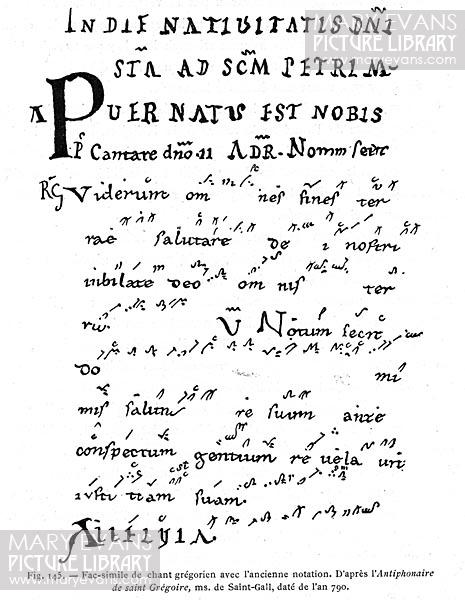 IN DIE NATIUITATIS DNI
STA AD SCM PETRUM
A PUER NATUS EST NOBIS
PS Cantate dño. II ADR. Notum fecit
RG Uiderunt om nes fines ter
rae salutare de i nostri
iubilate deo om nis ter
ra. V Notum fecit
do mi
nus saluta re suum ante
conspectum gentium re uela uit
iusti tiam suam.
Fig. 145. — Fac-simile de chant grégorien avec l'ancienne notation. D'après l'Antiphonaire
de saint Grégoire, ms. de Saint-Gall, daté de l'an 790.
MARY EVANS
PICTURE LIBRARY
maryevans.com
MARY EVANS
PICTURE LIBRARY